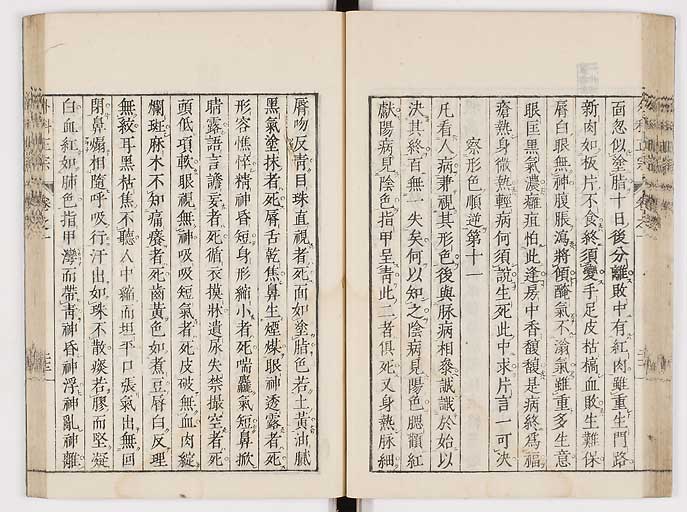 面忽似塗脂十日後分離敗中有紅肉雖重生門路
新肉如板片不食終須變手足皮枯槁血敗生難保
唇白眼無神腹脹瀉將傾醃氣不滃氣雖重多生意
眼匡黑氣濃癰疽怕此逢房中香馥馥是病終爲福
瘡熱身微熱輕病何須說生死此中求片言一可决
察形色順逆第十一
凡看人病兼視其形色後與脉病相叅誠識於始以
决其終百無一失矣何以知之陰病見陽色腮顴紅
獻陽病見陰色指甲呈青此二者俱死又身熱脉細
唇吻反青目珠直視者死面如塗脂色若土黃油膩
黑氣塗抹者死唇舌乾焦鼻生煙煤眼神透露者死
形容憔悴精神昏短身形縮小者死喘麤氣短鼻掀
睛露語言譫妄者死循衣摸牀遺尿失禁撮空者死
頭低項軟眼視無神吸吸短氣者死皮破無血肉綻
爛斑麻木不知痛癢者死齒黃色如煮豆唇白反理
無紋耳黑枯焦不聽人中縮而坦平口張氣出無回
閉鼻煽相隨呼吸行汗出如珠不散痰若膠而堅凝
白血紅如肺色指甲灣而帶青神昏神浮神亂神離
外科正宗
卷之一